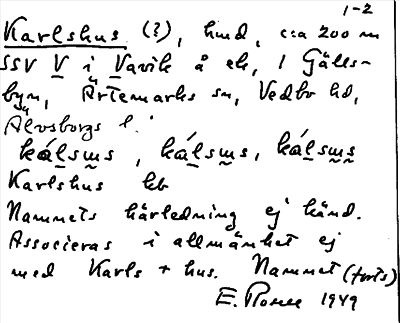 1-2
Karlshus (?), hmd, c:a 200 m
SSV V i Vavik å ek, i Gälls-
byn, Ärtemarks sn, Vedbo hd,
Älvsborgs l.
kálsɯs, kálsɯs, kálsɯs
Karlshus kb
Namnets härledning ej känd.
Associeras i allmänhet ej
med Karls + hus. Namnet (forts)
E. Rosell 1949